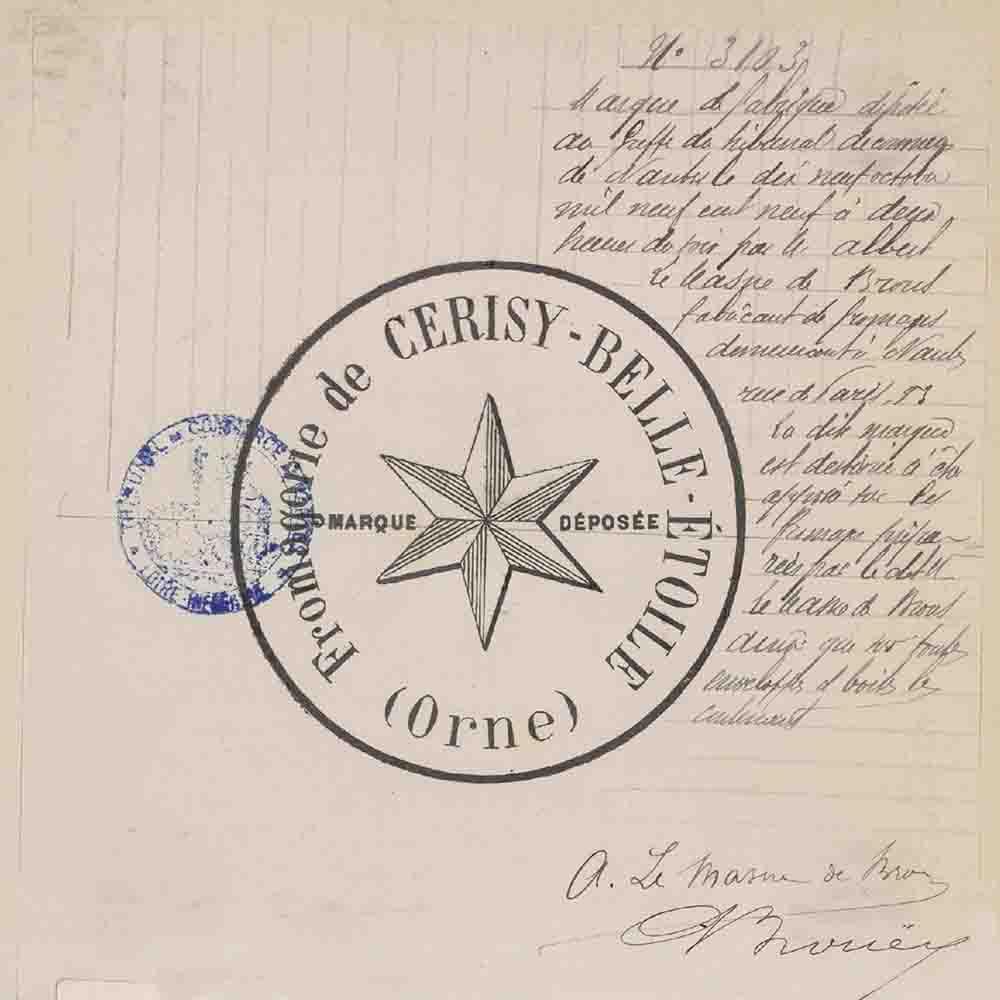 N° 3103
Marque de fabrique déposée
au Greffe du tribunal de commerce
de Nantes le dix neuf octobre
mil neuf cent neuf à deux
heures du soir par Mr Albert
Le Masne de Brons
fabricant de fromages
demeurant à Nantes
rue de Paris,
La dite marque
est destinée à être
apposée sur les
fromages prépa-
rés par le dit Mr
Le Masne de Brons
ainsi que sur toutes
enveloppes et boites les
contenant
Fromagerie de CERISY-BELLE-ÉTOILE
(Orne)
MARQUE DÉPOSÉE
TRIBUNAL DE COMMERCE
A. Le Masne de Brons